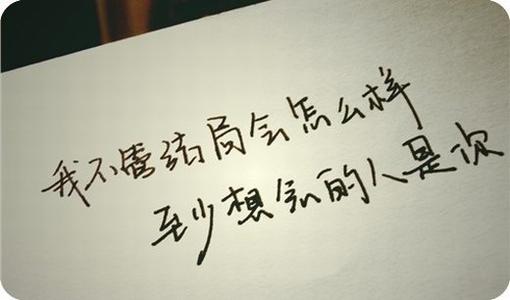 我不管结局会怎么样
至少想念的人是你